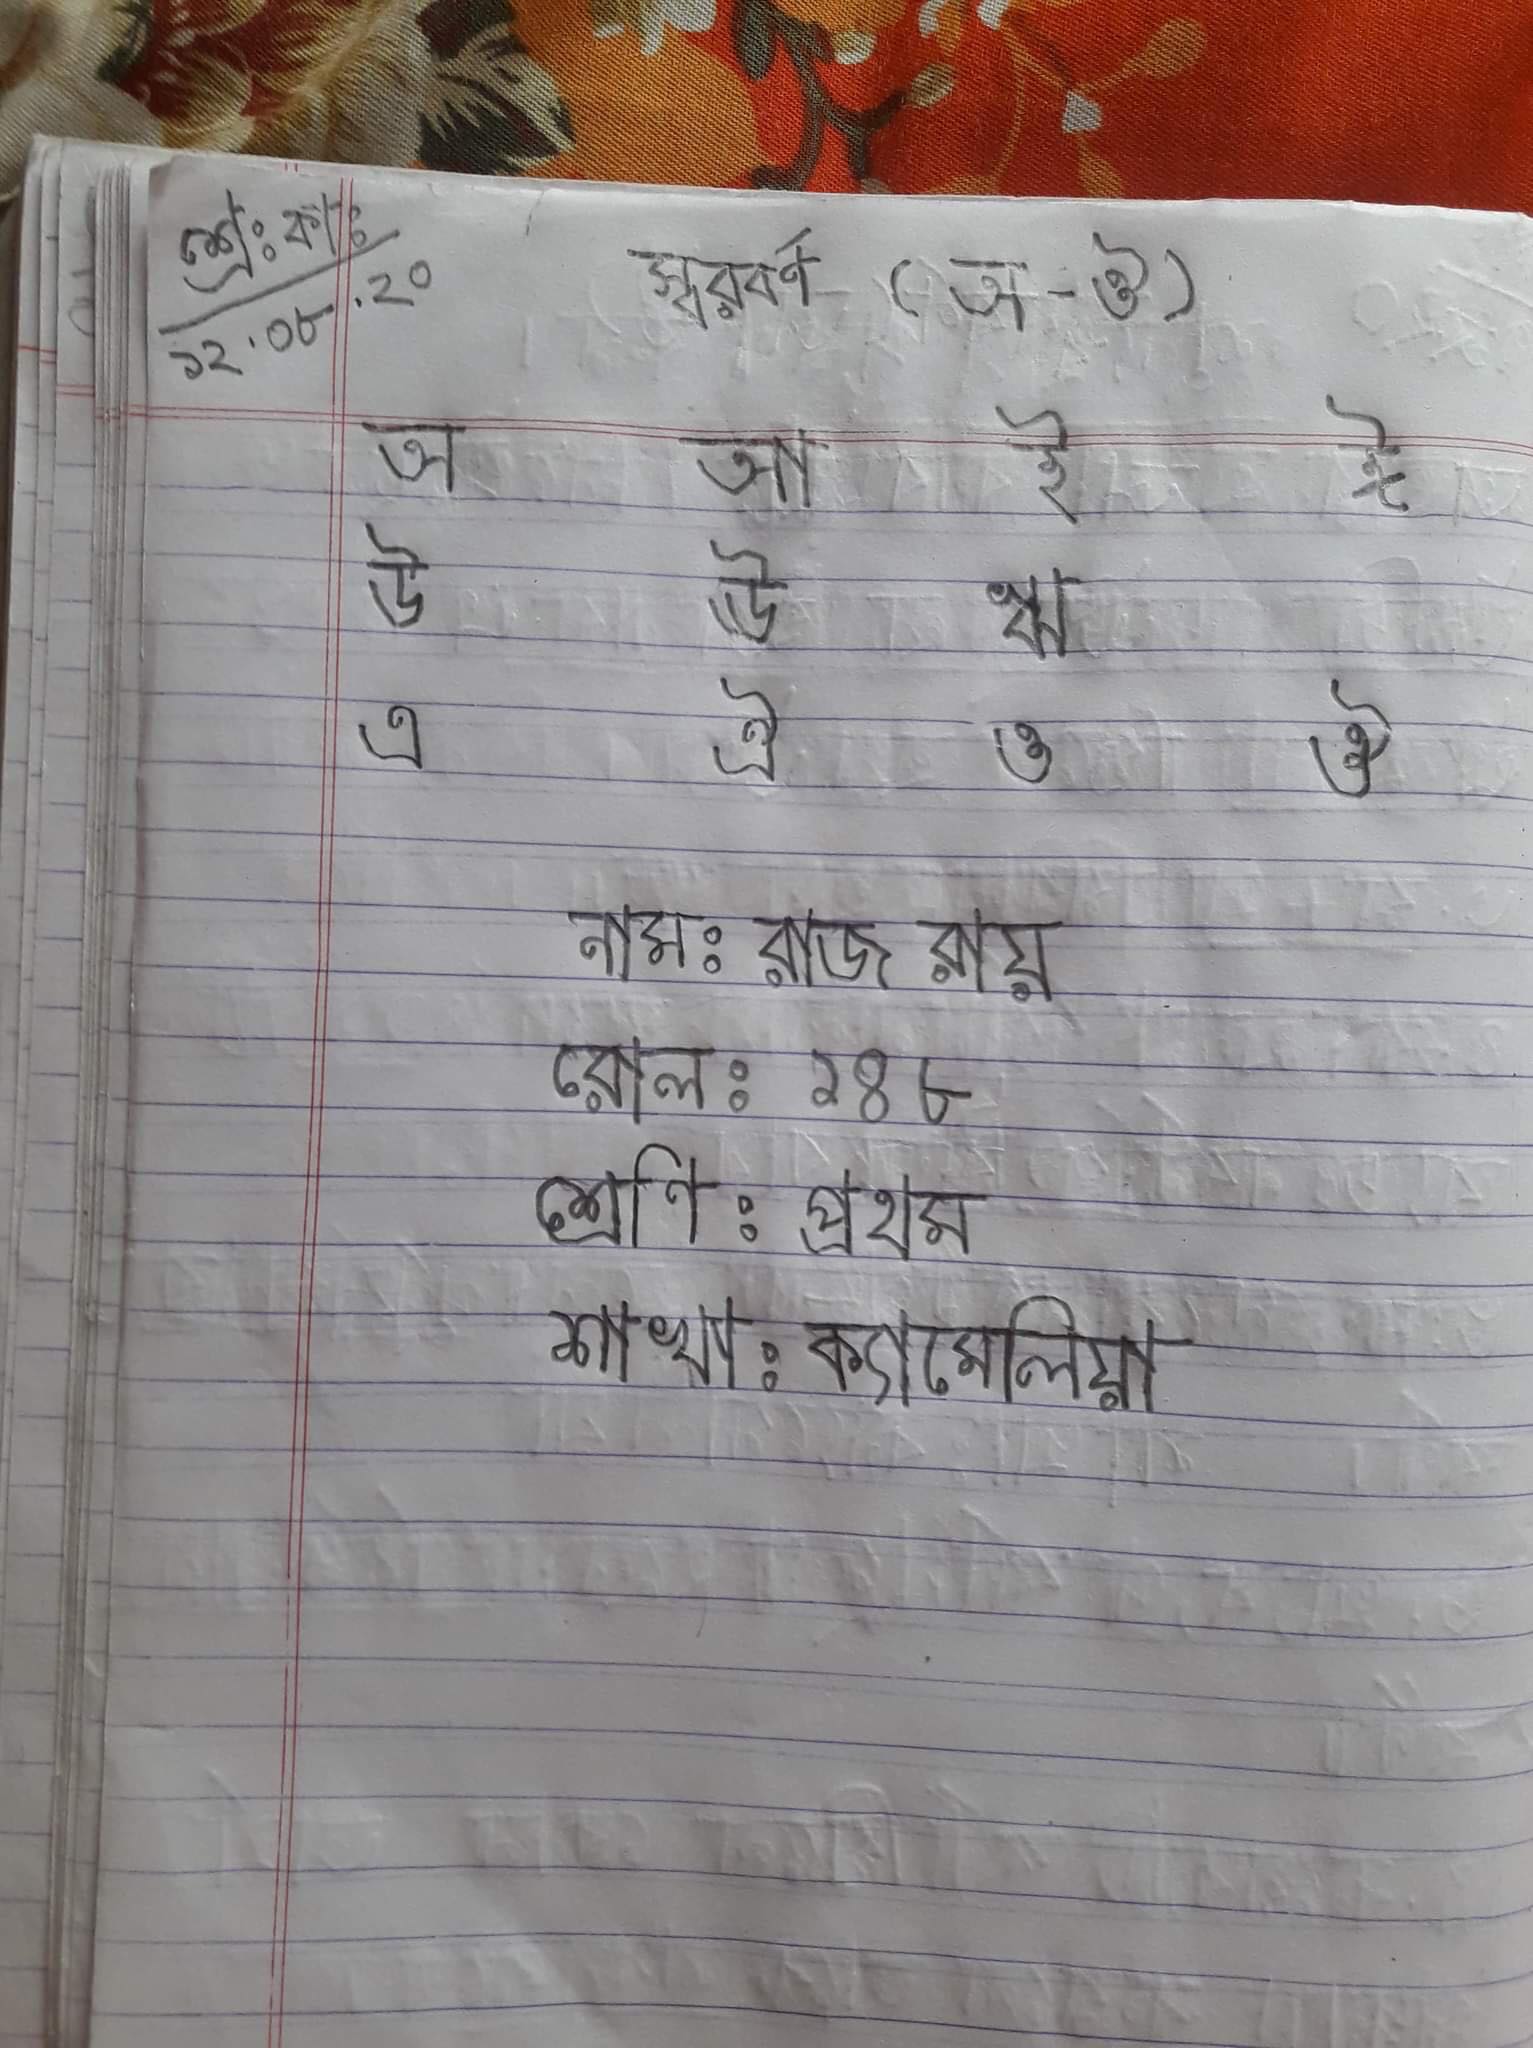 শ্রেঃ কাঃ
১২.০৮.২০
স্বরবর্ণ (অ-ঔ)
অ আ ই ঈ
উ ঊ ঋ
এ ঐ ও ঔ
নামঃ রাজ রায়
রোলঃ ২৪৮
শ্রেণিঃ প্রথম
শাখাঃ ক্যামেলিয়া